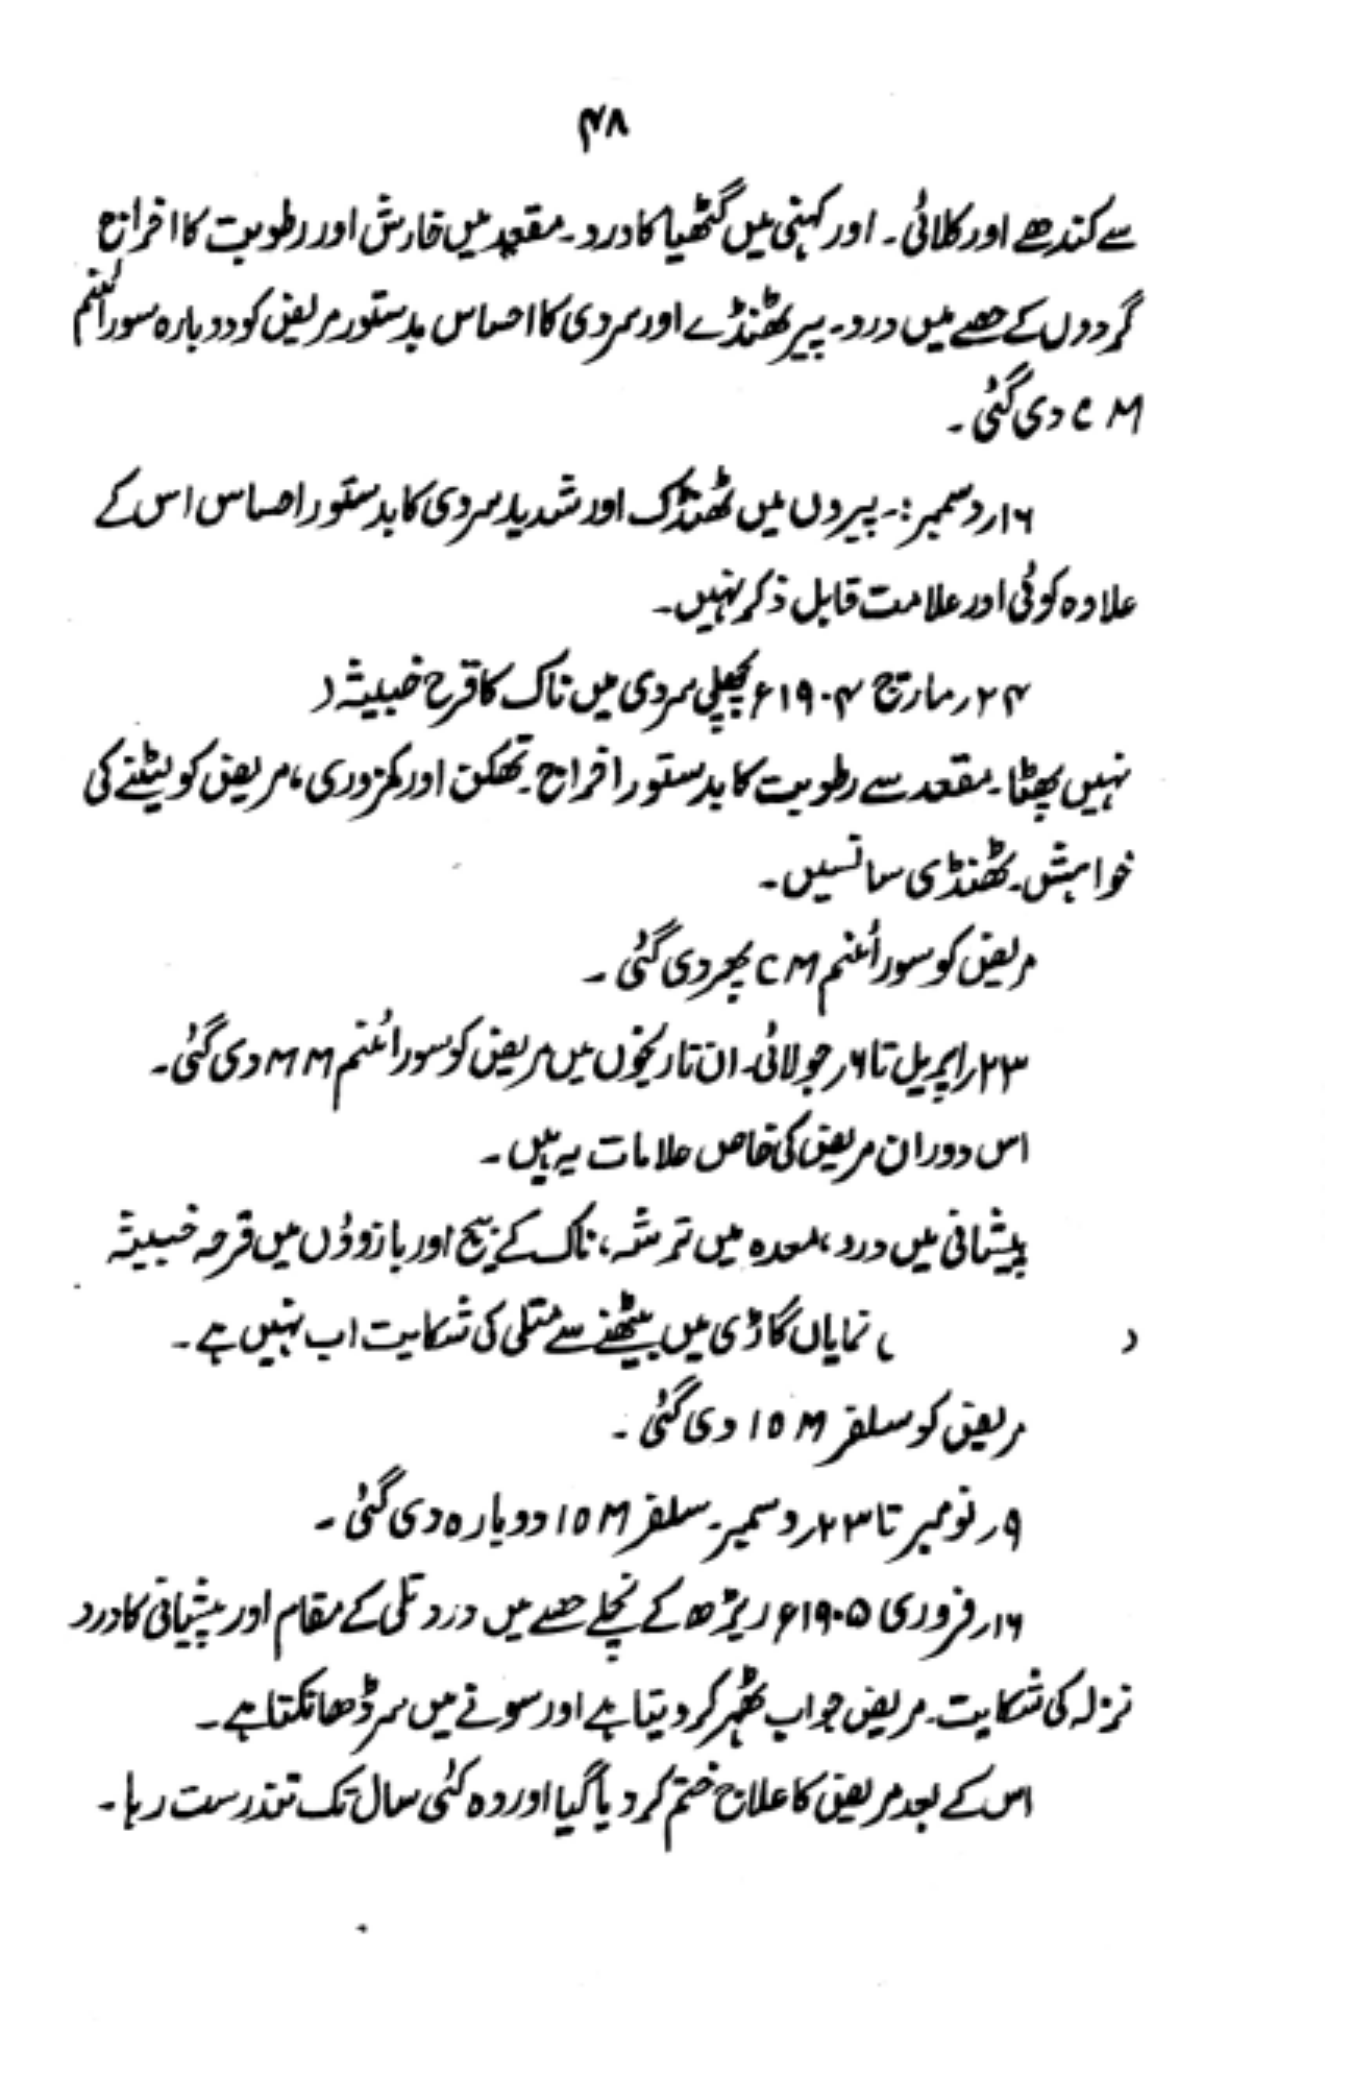 ۴۸
سے کندھے اور کلائی۔ اور کہنی میں گٹھیا کا درد۔ مقعد میں خارش اور رطوبت کا اخراج
گردوں کے حصے میں درد۔ پیر ٹھنڈے اور سردی کا احساس بدستور مریض کو دوبارہ سورائنم
C M دی گئی۔
۱۶ر دسمبر:۔ پیروں میں ٹھنڈک اور شدید سردی کا بدستور احساس اس کے
علاوہ کوئی اور علامت قابل ذکر نہیں۔
۲۴ر مارچ ۱۹۰۴ء پچھلی سردی میں ناک کا قرح خبیثہ (
نہیں پھٹا۔ مقعد سے رطوبت کا بدستور اخراج۔ تھکن اور کمزوری، مریض کو لیٹنے کی
خواہش۔ ٹھنڈی سانسیں۔
مریض کو سورائنم C M پھر دی گئی۔
۲۳ر اپریل تا ۶ر جولائی۔ ان تاریخوں میں مریض کو سورائنم M M دی گئی۔
اس دوران مریض کی خاص علامات یہ ہیں۔
پیشانی میں درد، معدہ میں ترشہ، ناک کے بیچ اور بازوؤں میں قرحہ خبیثہ
( ) نمایاں گاڑی میں بیٹھنے سے متلی کی شکایت اب نہیں ہے۔
مریض کو سلفر ۱۵ M دی گئی۔
۹ر نومبر تا ۲۳ر دسمبر۔ سلفر ۱۵ M دوبارہ دی گئی۔
۱۶ر فروری ۱۹۰۵ء ریڑھ کے نچلے حصے میں درد تلی کے مقام اور پیشانی کا درد
نزلہ کی شکایت۔ مریض جواب ٹھہر کر دیتا ہے اور سوتے میں سر ڈھانکتا ہے۔
اس کے بعد مریض کا علاج ختم کر دیا گیا اور وہ کئی سال تک تندرست رہا۔